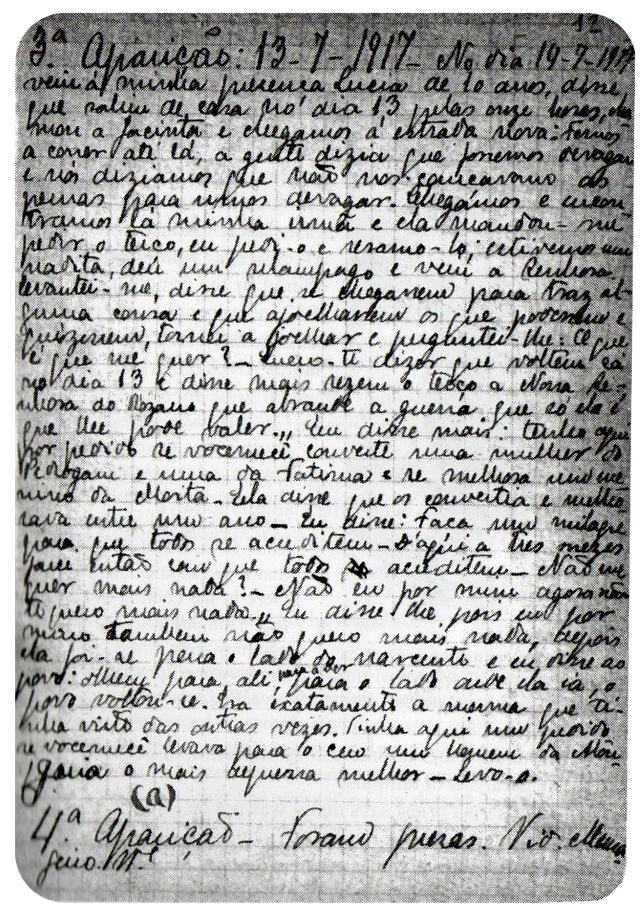 12
3.ª Aparição: 13-7-1917- No dia 14-7-1917
veiu á minha presença Lucia de 10 anos, disse
que saliu de casa no dia 13 pelas onze horas,
mou a Jacinta e chegamos á estrada nova: Fomos
a correr até lá, a gente dizia que fossemos devagar
e nós diziamos que não nos cancavamo as
pernas para irmos devagar. Chegámos e encon-
tramos lá minha irmã e ela mandou-me
pedir o terço, eu pedi-o e resamo-lo; estivemos um
nadita, deu um relampago e veiu a Senhora
levantei-me, disse que se chegassem para traz al-
guma cousa e que ajoelhassem os que podessem e
quizessem, tornei a joelhar e preguntei-lhe: O que
é que me quer? - Quero-te dizer que voltem cá
no dia 13 e disse mais rezem o terço a Nossa Se-
nhora do Rozario que abrande a guerra que só ela é
que lhe pode valer.,, Eu disse mais: tenho aqui
por pedido se vocemecê converte uma mulher do
Pedrogam e uma da Fatima e se melhora um me-
nino da Moita - Ela disse que os convertia e melho-
rava entre um ano - Eu disse: Faça um milagre
para que todos se acreditem - D'aqui a tres mezes
farei então com que todos acreditem - Não me
quer mais nada? - Não eu por mim agora não
te quero mais nada,, Eu disse lhe pois eu por
mim tambem não quero mais nada, depois
ela foi-se pera o lado do nascente e eu disse ao
povo: olhem para ali, para a ver para o lado onde ela ia, o
povo voltou-se. Era exatamente a mesma que ti-
nha visto das outras vezes. Tinha aqui um pedido
se vocemecê levava para o ceu um homem da Atou-
guia o mais depressa melhor - Levo-o.
(a)
4.ª Aparição - Foram prezas. Vid.